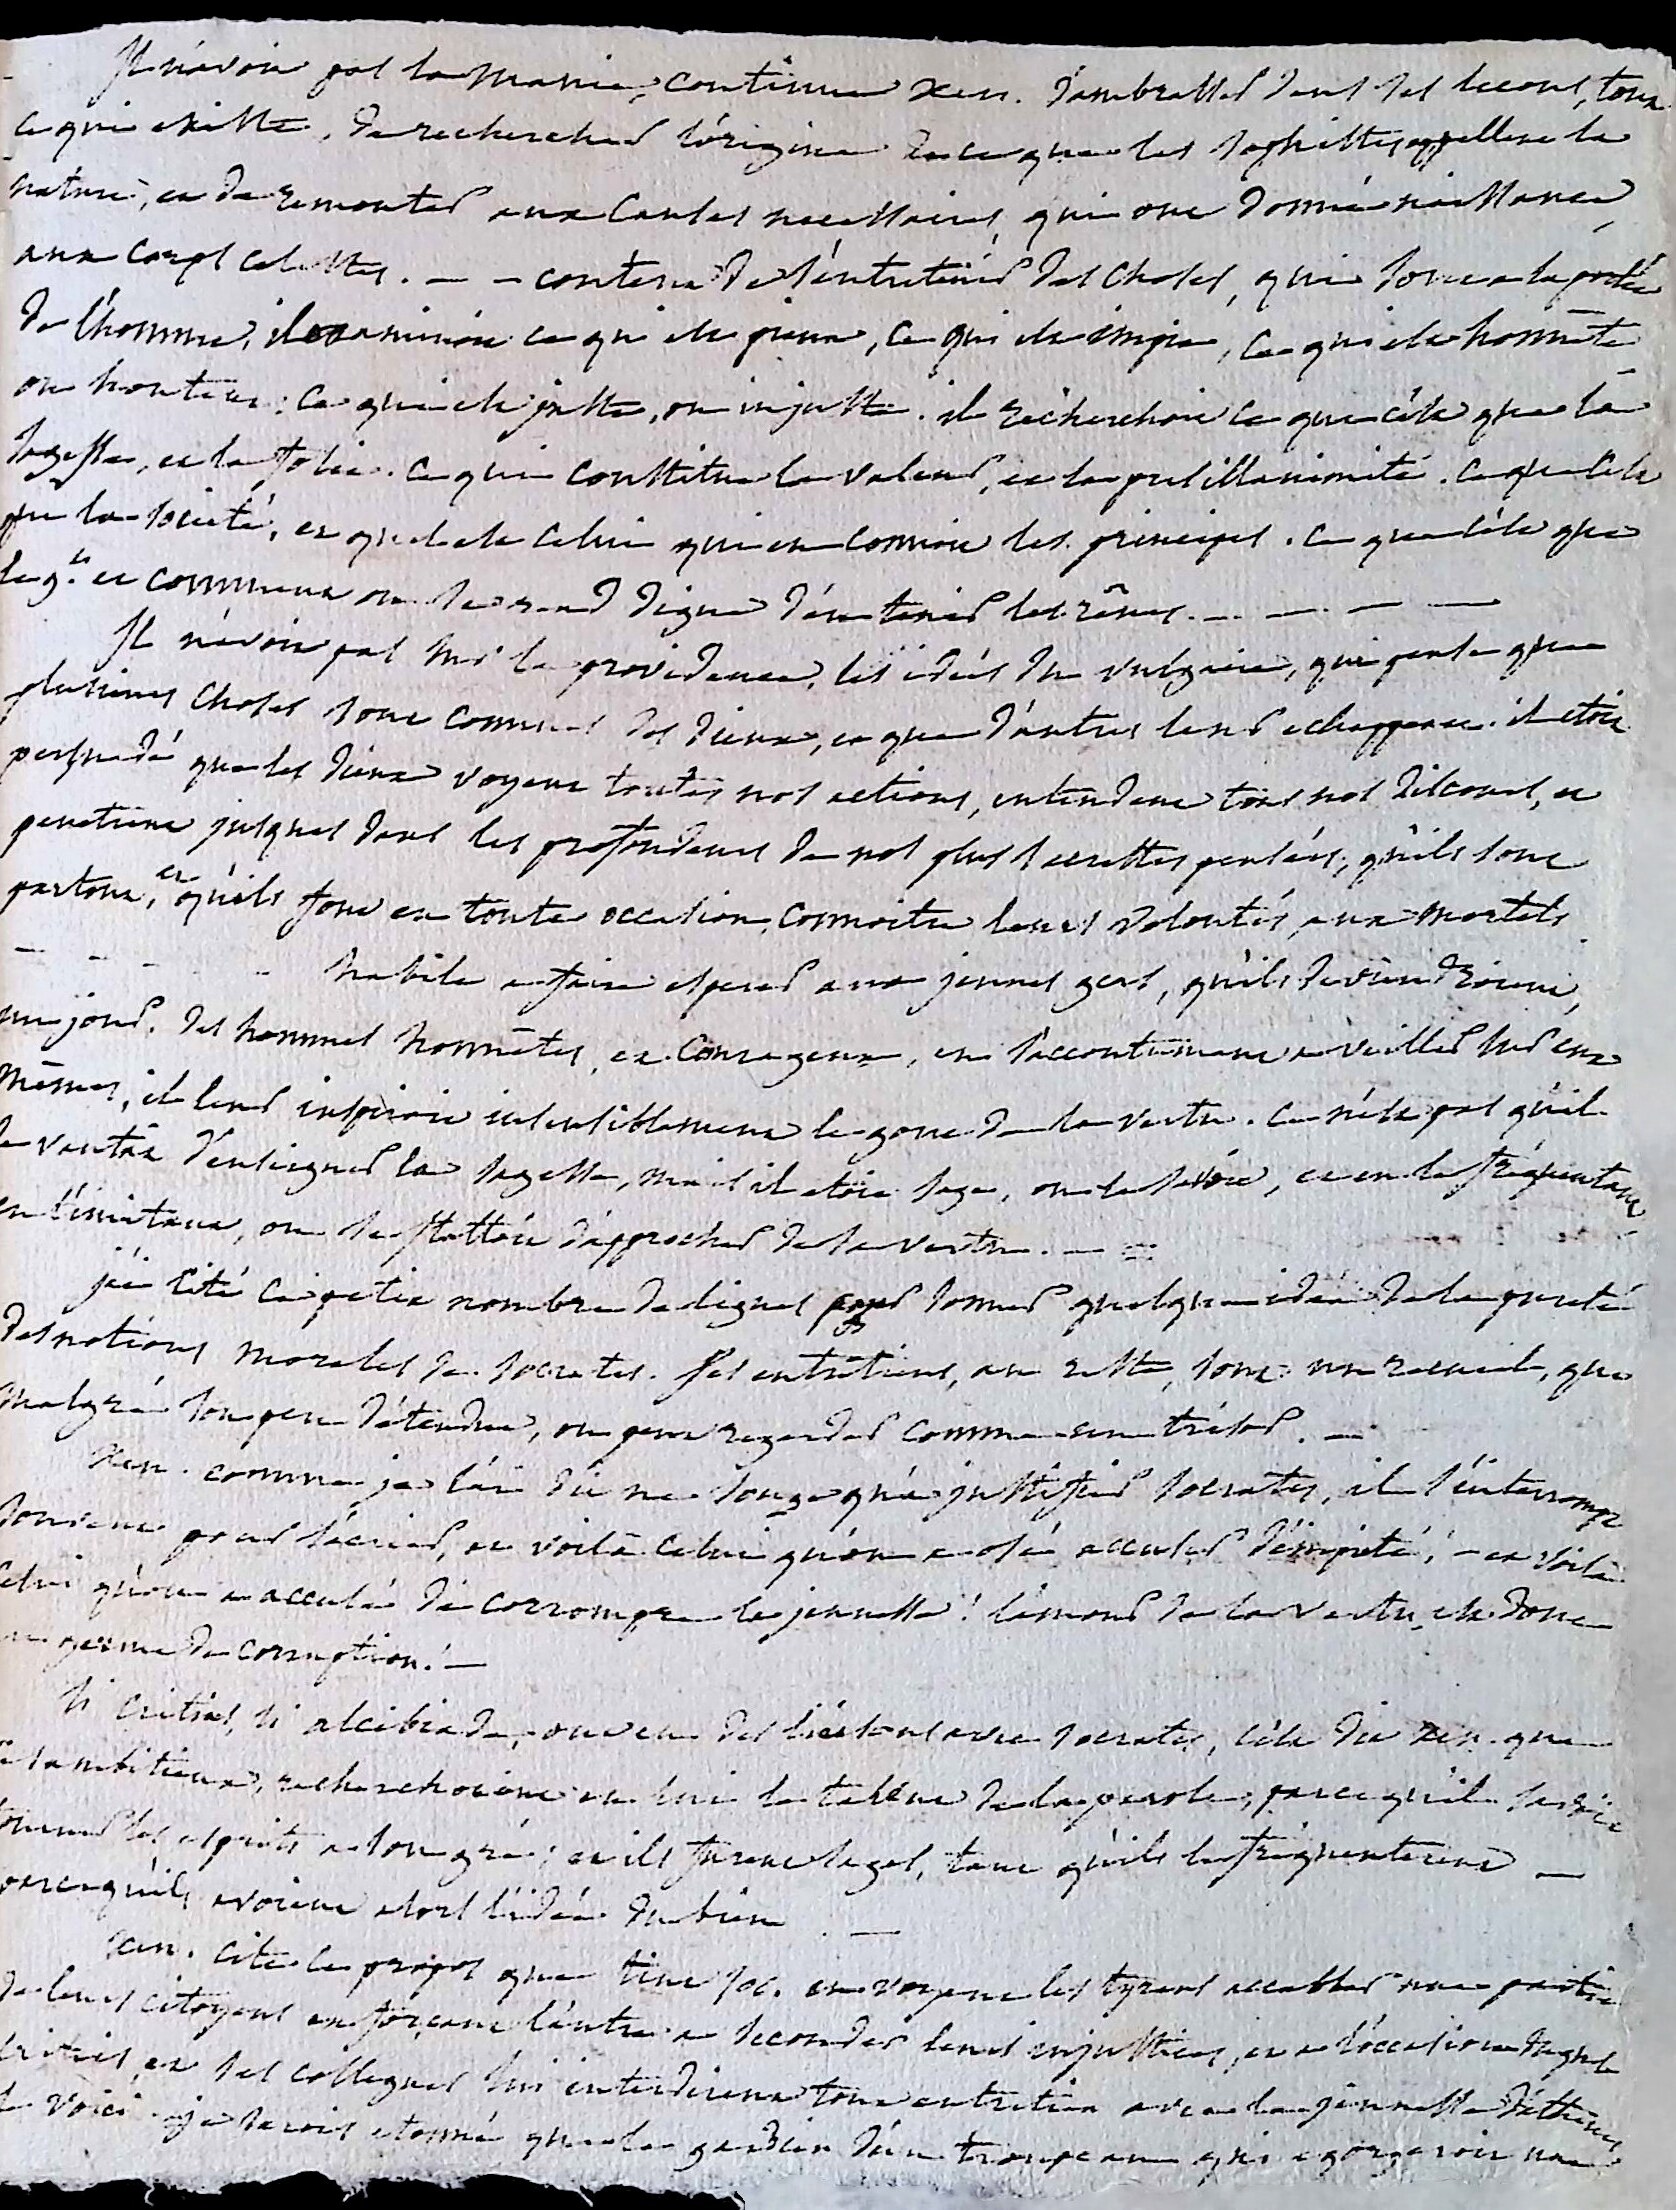 Il n'avoit pas la manie, continue Xen. d'embrasser dans ses lecons, tout
ce qui existe, de rechercher l'origine de ce que les sophistes appellent la
nature, et de remonter aux causes necessaires, qui ont donné naissance
aux corps celestes. — – content de s'entretenir des choses, qui sont a la portée
de l'homme, il examinoit ce qui est pieux, ce qui est impie, ce qui est honnête
ou honteux: ce qui est juste, ou injuste. il recherchoit ce que c'est que la
sagesse, et la folie. ce qui constitue la valeur, et la pusillanimité. ce que c'est
que la societé, et quel est celui qui en connoit les principes. ce que c'est que
le g.t et comment on se rend digne d'en tenir les rênes. — — — —
Il n'avoit pas sur la providence, les idées du vulgaire, qui pense que
plusieurs choses sont connues des dieux, et que d'autres leur echappent. il etoit
persuadé que les dieux voyent toutes nos actions, entendent tous nos discours, et
penetrent jusques dans les profondeurs de nos plus secrettes pensées, qu'ils sont
partout, et qu'ils font en toute occasion, connoitre leurs volontés, aux mortels.
– – – – habile a faire esperer aux jeunes gens, qu'ils deviendroient,
un jour, des hommes honnêtes, et courageux, en s'accoutumant a veiller sur eux
mêmes, il leur inspiroit insensiblement le gout de la vertu. ce n'est pas qu'il
se vantât d'enseigner la sagesse, mais il etoit sage, on le savoit, et en le fréquentant
en l'imitant, on se flattoit d'approcher de la vertu. — =
j'ai cité ce petit nombre de lignes pour donner quelque idée de la pureté
des notions morales de Socrates. Ses entretiens, au reste, sont un recueil, que
malgré son peu d'étendue, on peut regarder comme un trésor. —
Xen. comme je l'ai dit ne songe qu'a justifier Socrates, il s'interrompt
souvent pour s'écrier, et voila celui qu'on a osé accuser d'impieté, – et voila
celui qu'on a accusé de corrompre la jeunesse! l'amour de la vertu, est donc
un germe de corruption! —
Si critias, si alcibiade, ont eu des liaisons avec Socrates, c'est dit Xen. que
ambitieux, recherchoient en lui le talent de la parole, parce qu'il savoit
tourner les esprits a son gré; et ils furent sages, tant qu'ils le fréquenterent —
parcequ'ils avoient alors l'idée du bien. —
Xen. cite le propos que tint Soc. en voyant les tyrans accabler une partie
de leurs citoyens en forçant l'autre a seconder leurs injustices, et a l'occasion duquel
critias, et ses collegues lui interdirent tout entretien avec la jeunesse d'athenes
le voici. je serois etonné que le gardien d'un troupeau qui egorgeroit une